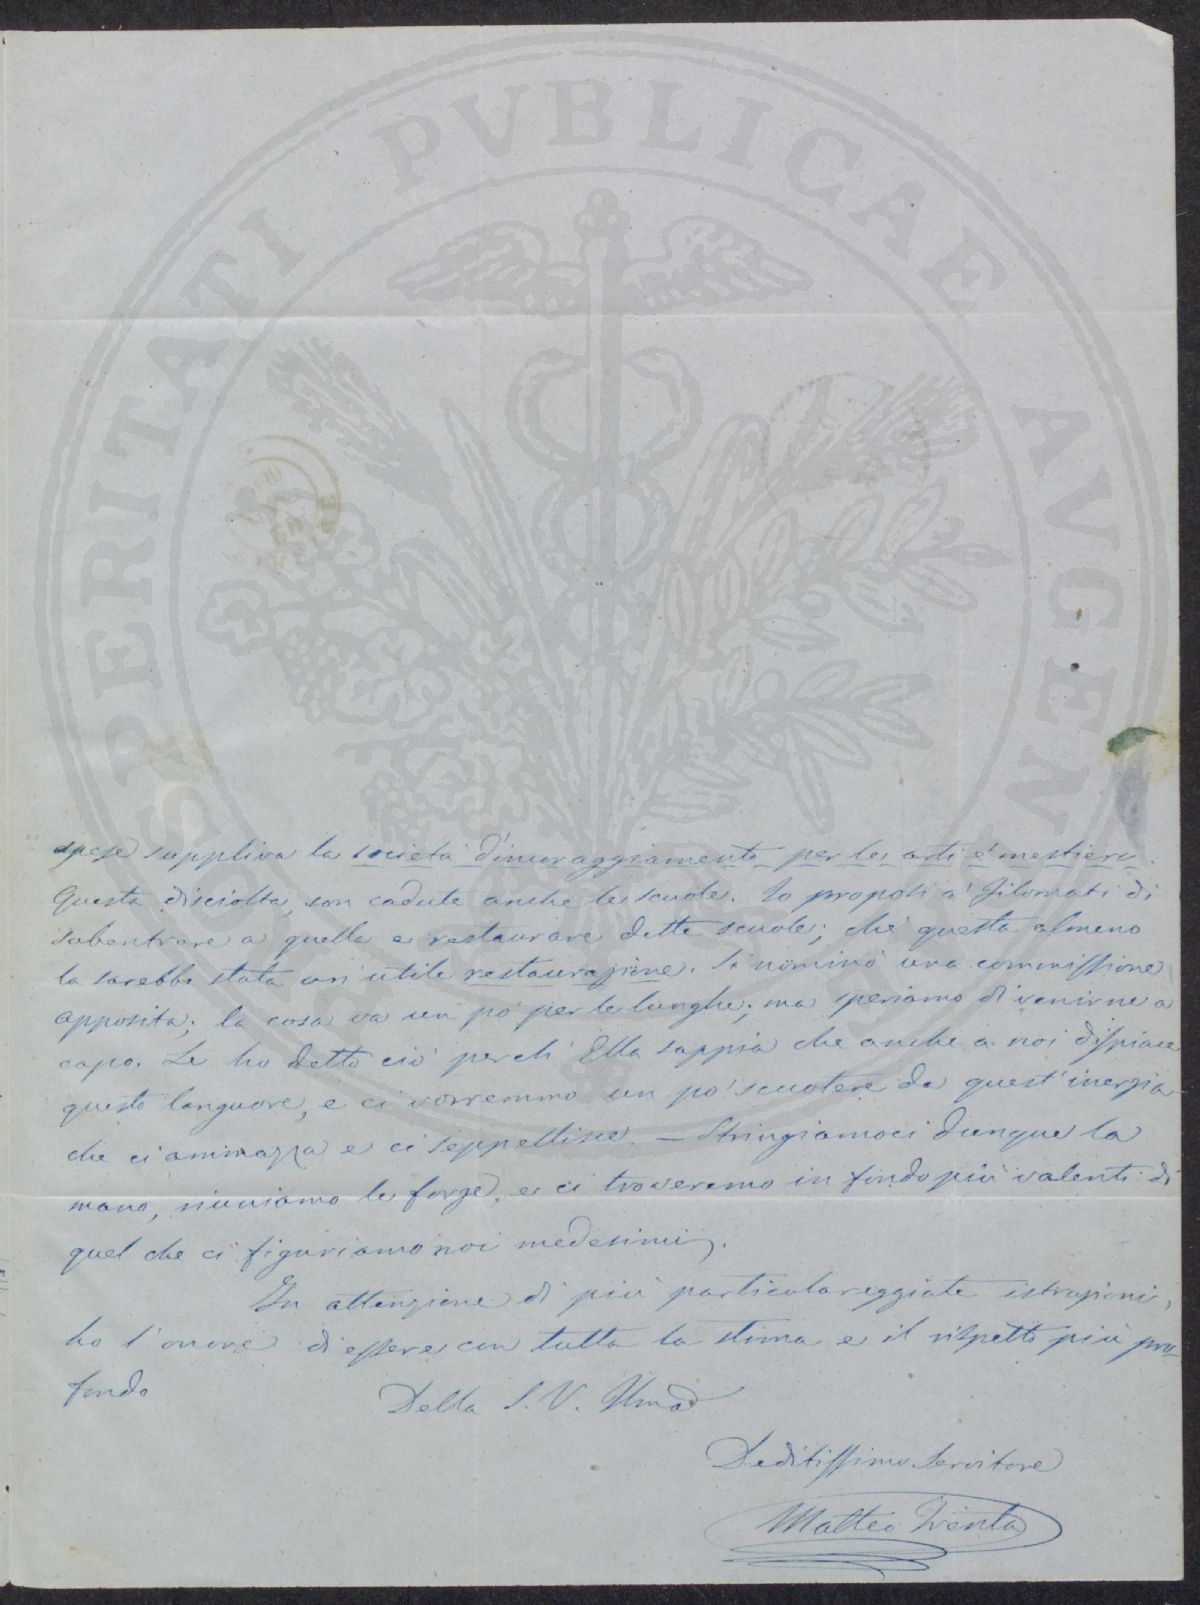 PROSPERITATI PVBLICAE AVGENDAE
spese suppliva la società d'incoraggiamento per le arti e' mestieri.
Questa disciolta, son cadute anche le scuole. Io proposi a' Filomati di
subentrare a quella e restaurare dette scuole; chè questa almeno
la sarebbe stata un' utile restaurazione. Si nominò una commissione
apposita; la cosa va un po' per le lunghe; ma speriamo di venirne a
capo. Le ho detto ciò perchè Ella sappia che anche a noi dispiace
questo languore, e ci vorremmo un po' scuotere da quest' inerzia
che ci ammazza e ci seppellisce. — Stringiamoci dunque la
mano, riuniamo le forze, e ci troveremo in fondo più valenti di
quel che ci figuriamo noi medesimi.
In attenzione di più particolareggiate istruzioni,
ho l'onore di essere con tutta la stima e il rispetto più pro-
fondo
Della S. V. Illma
Deditissimo Servitore
Matteo Trenta